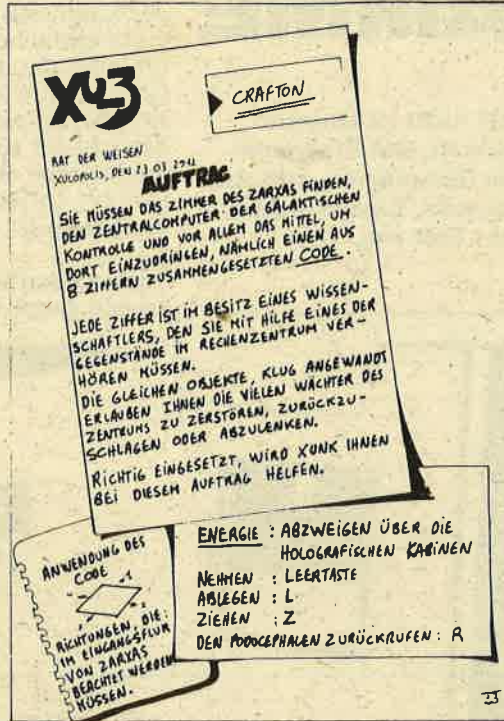 XUL3
CRAFTON
RAT DER WEISEN
XULOPOLIS, DEN 23 03
AUFTRAG
SIE MÜSSEN DAS ZIMMER DES ZARXAS FINDEN,
DEN ZENTRALCOMPUTER DER GALAKTISCHEN
KONTROLLE UND VOR ALLEM DAS MITTEL, UM
DORT EINZUDRINGEN, NÄMLICH EINEN AUS
8 ZIFFERN ZUSAMMENGESETZTEN CODE.
JEDE ZIFFER IST IM BESITZ EINES WISSEN-
SCHAFTLERS, DEN SIE MIT HILFE EINES DER
GEGENSTÄNDE IM RECHENZENTRUM VER-
HÖREN MÜSSEN.
DIE GLEICHEN OBJEKTE, KLUG ANGEWANDT
ERLAUBEN IHNEN DIE VIELEN WÄCHTER DES
ZENTRUMS ZU ZERSTÖREN, ZURÜCKZU-
SCHLAGEN ODER ABZULENKEN.
RICHTIG EINGESETZT, WIRD XUNK IHNEN
BEI DIESEM AUFTRAG HELFEN.
ANWENDUNG DES
CODE
RICHTUNGEN, DIE
IM EINGANGSFLUR
VON ZARXAS
BEACHTET WERDEN
MÜSSEN.
ENERGIE : ABZWEIGEN ÜBER DIE
HOLOGRAFISCHEN KABINEN
NEHMEN : LEERTASTE
ABLEGEN : L
ZIEHEN : Z
DEN PODOCEPHALEN ZURÜCKRUFEN : R